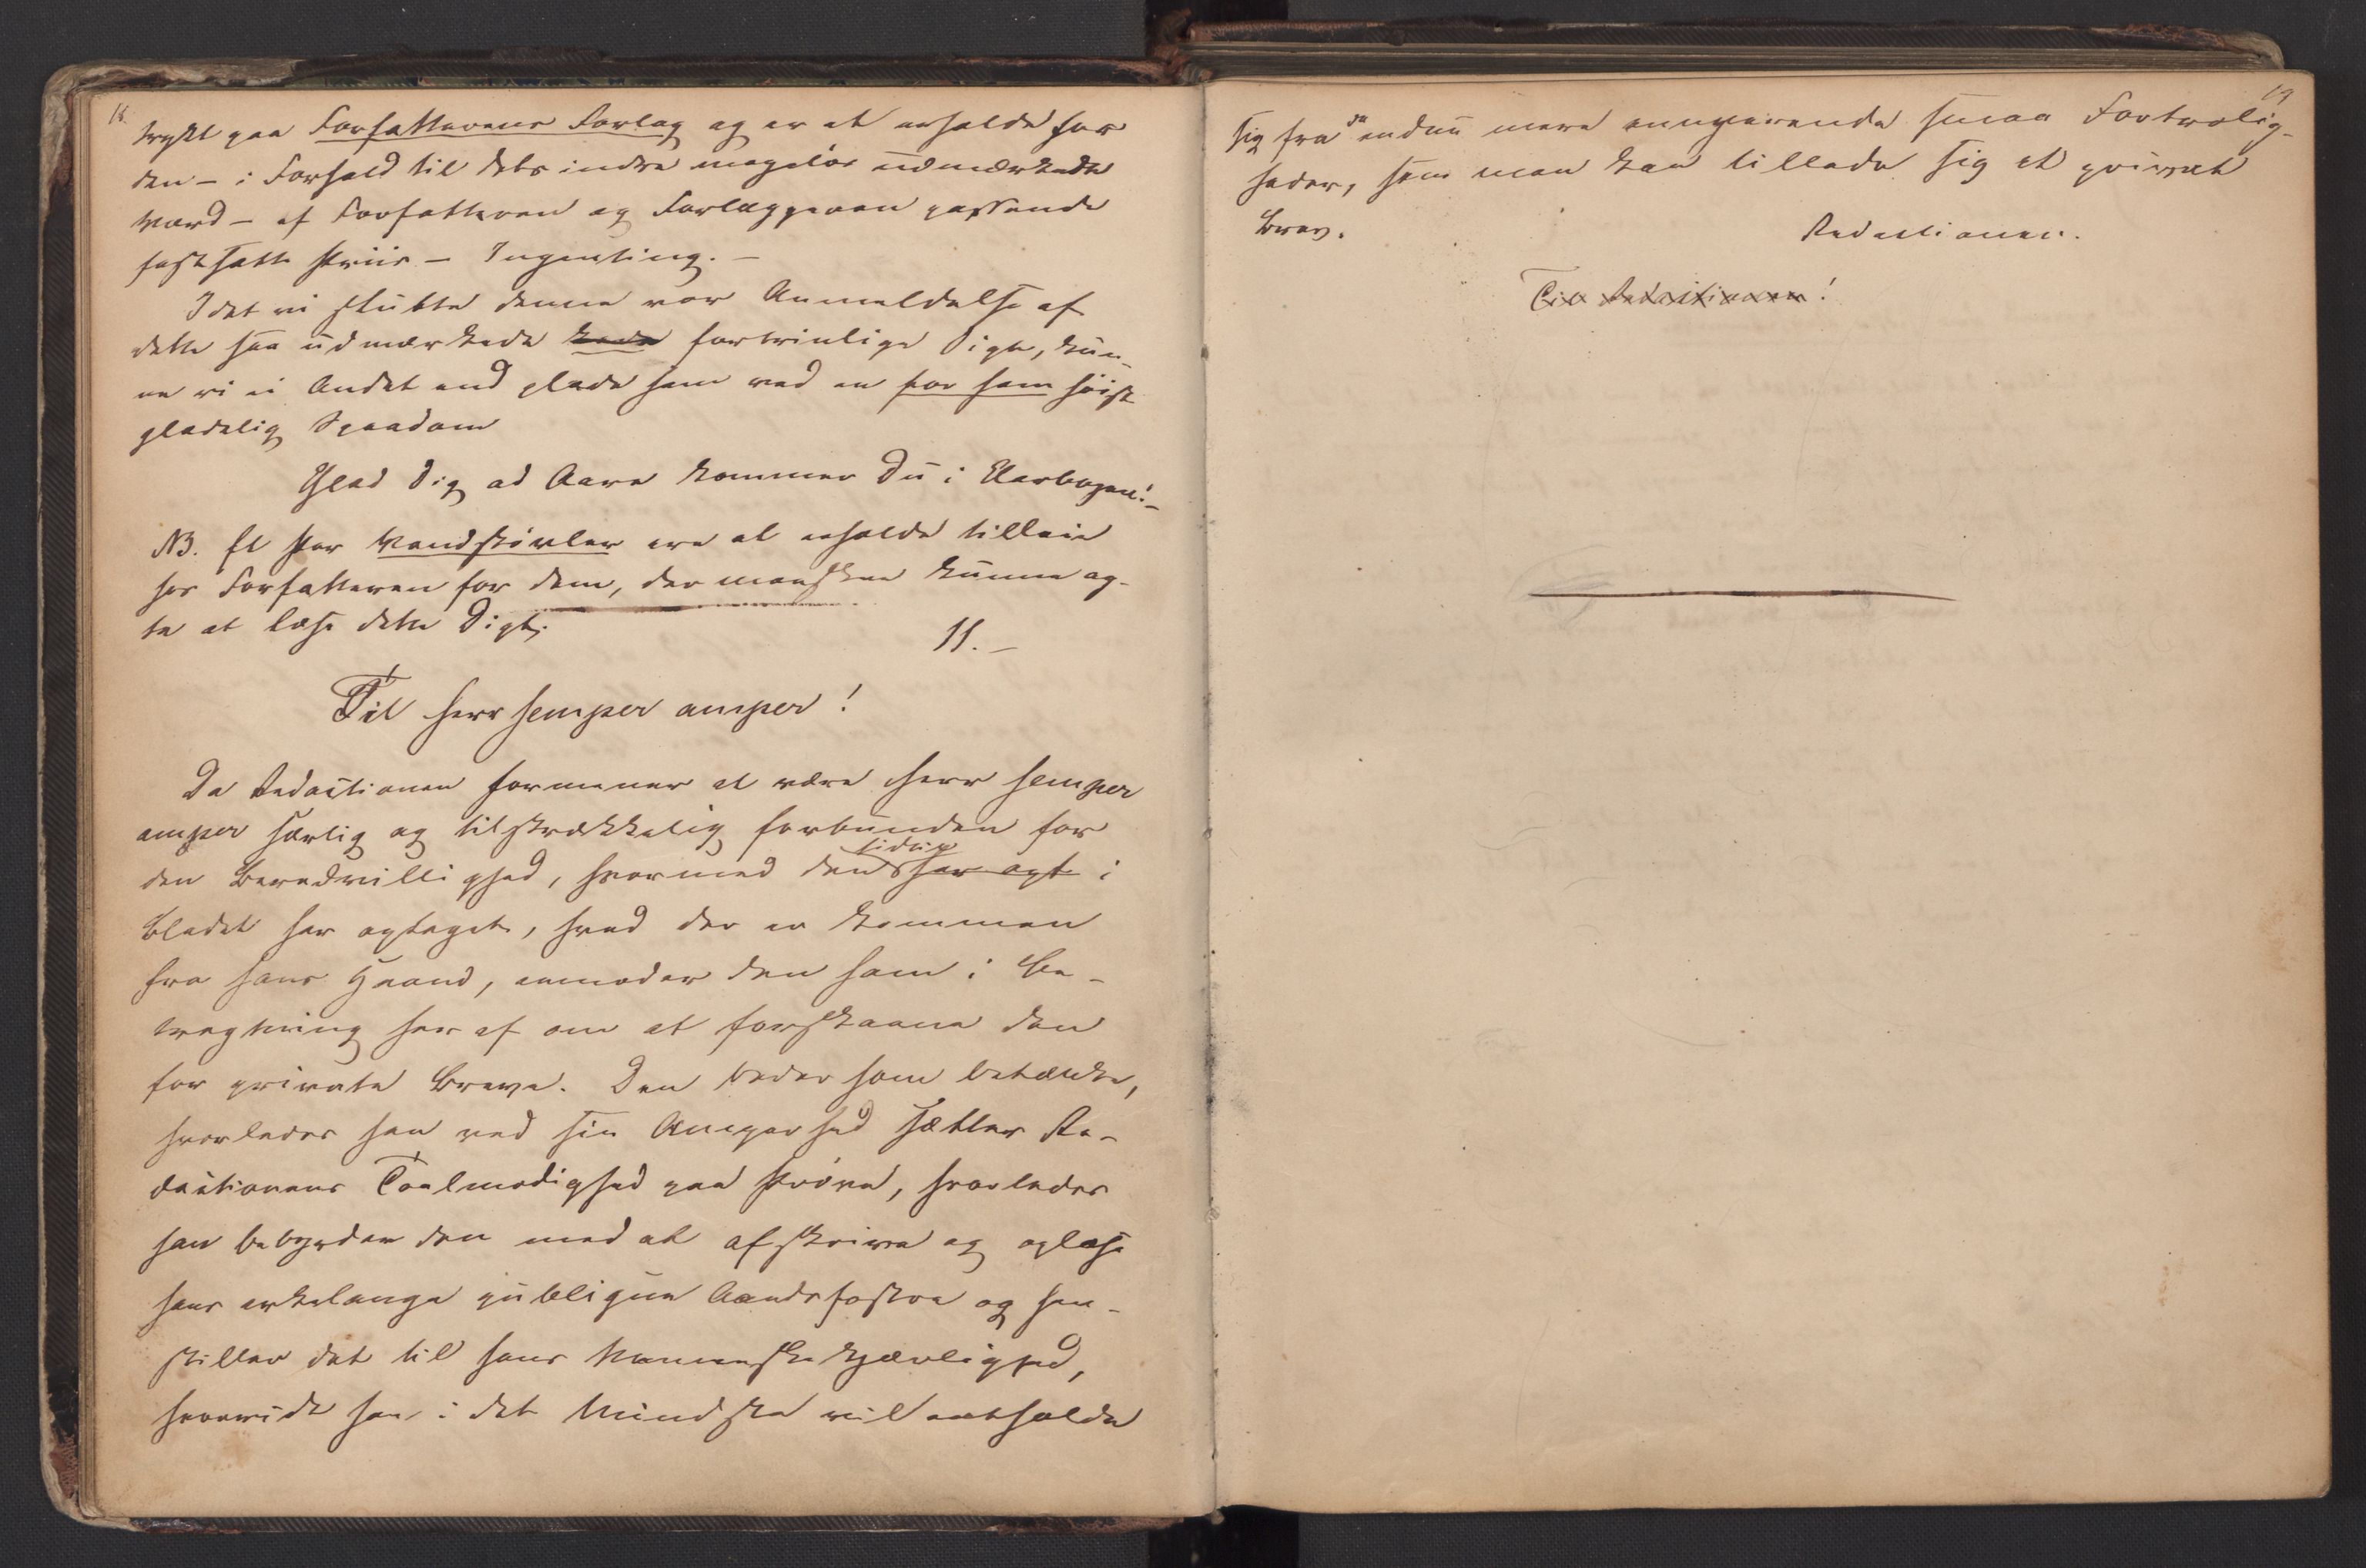 18.
trykt paa Forfatterens Forlag og er at erholde for
den – i Forhold til dets indre mageløs udmærkede
Værd – af Forfatteren og Forlæggeren passende
fastsatte Priis – Ingenting. –
Idet vi slutte denne vor Anmeldelse af
dette saa udmærkede fortrinlige Digt, kun-
ne vi ei Andet end glæde ham med en for ham høist
glædelig Spaadom
Glæd Dig ad Aare kommer Du i Narbogen! –
NB. Et Par Vandstøvler ere at erholde tilleie
hos Forfatteren for dem, der maaskee kunne ag-
te at læse dette Digt.
11. –
Til Herr semper amper!
Da Redactionen formener at være Herr semper
amper særlig og tilstrækkelig forbunden for
den Beredvillighed, hvormed den har opt i
Bladet har optaget, hvad der er kommen
fra hans Haand, anmoder den ham i Be-
tragtning her af om at forskaane den
for private Breve. Den beder ham betænke,
hvorledes han ved sin Amperhed sætter Re-
dactionens Taalmodighed paa Prøve, hvorledes
han bebyrder den med at afskrive og oplæse
hans erkelange publique Aandsfostre og hen-
stiller det til hans Menneskekjærlighed,
hvorvidt han i det Mindste vil entholde
19
sig fra de endnu mere ennuyerende smaa Fortrolig-
heder, som man kan tillade sig et privat
Brev.
Redactionen.
Til Redactionen!